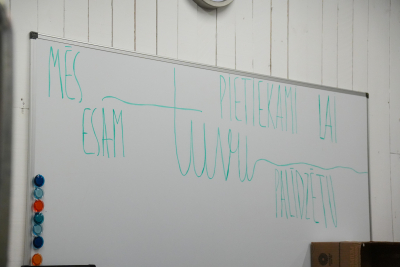 MĒS
ESAM
tuvu
PIETIEKAMI LAI
PALĪDZĒTU